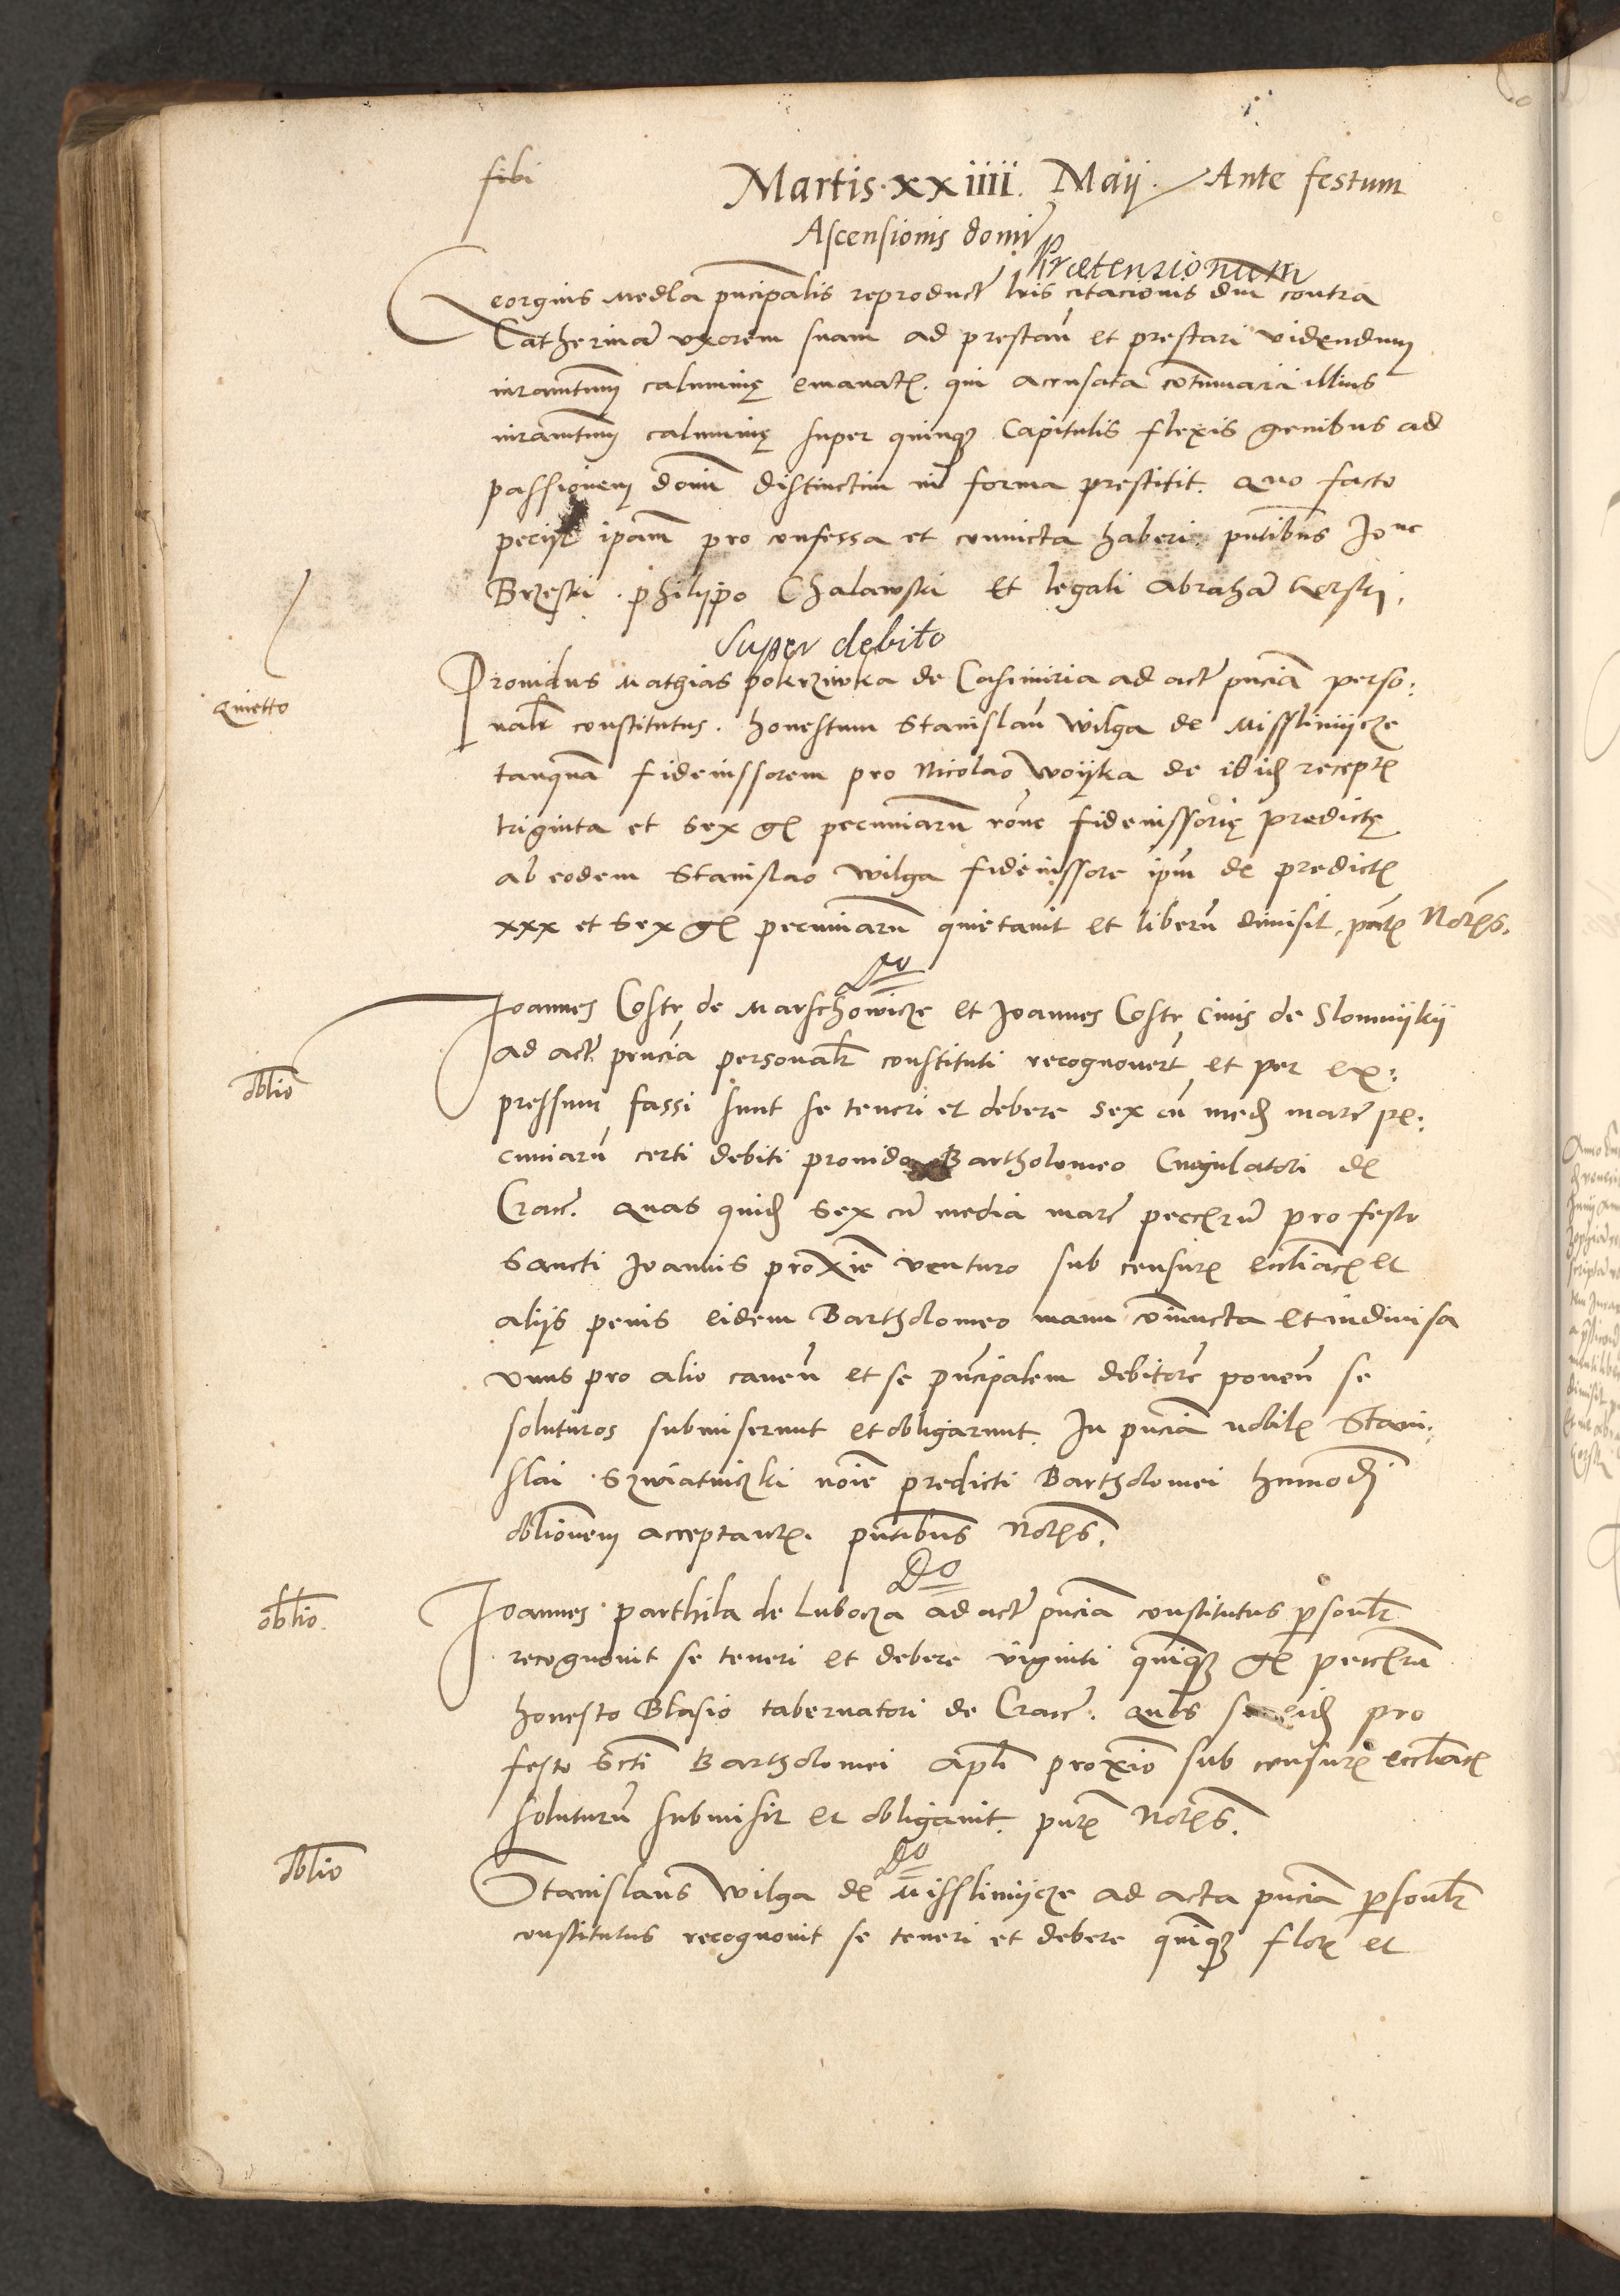 sibi
Martis · xxiiii. Maij. Ante festum
Ascensionis domĩ
Prætensionum
Georgius Medla pñcipalis reproductᵣ lris citacionis dni contra
Catherinã vxorem suam ad prestañ et prestari videndum
iuramtum calumnię emanatꝭ. qui accusata cõtumacia illius
iuramtum calumnię super quinqꝫ Capitulis flexis genibus ad
passionem domĩ distinctim in forma prestitit. Quo facto
peciit ipam pro confessa et conuicta haberi. pñtibus Ione
Brzeski. philippo Chalawski et legali Abrahã
Super debito
quietto
Prouidus Mathias pokrziwka de Casimiria ad actᵣ pñciã perso:
nalr constitutus. honestum Stanislaũ Wilga de Missliniycze
tanquã fideiussorem pro Nicolao Woyka de ibidꝫ receptꝭ
triginta et sex gꝭ pecuniarũ rõne fideiussorię predictę
ab eodem Stanislao Wilga fideiussore ipm de predictꝭ
xxx et sex gꝭ pecuniarũ quietauit et liberũ dimisit. pñtꝭ Notꝭs.
Do
oblio
Ioannes Costr de Marschowicze et Ioannes Costr Ciuis de Slomniykij
ad actᵣ pñcia personalr constituti recognouert et per ex:
pressum fassi sunt se teneri et debere sex cũ medꝫ marc pe:
cuniarũ certi debiti prouido Bartholomeo Cingulatori de
Cracᵣ. Quas quidꝫ sex cũ media marc peccᵣrũ pro festo
Sancti Ioannis proxime venturo sub censurꝭ ecclãcꝭ et
alijs penis eidem Bartholomeo manu cõiuncta et indiuisa
vnus pro alio caueñ et se pñcipalem debitorẽ poneñ se
soluturos submiserunt et obligarunt. In pñciã nobilꝭ Stani:
slai Szwiatniczki noĩe predicti Bartholomei hmõdi
oblionem acceptantꝭ. pñtibus Notꝭs.
Do
oblio.
Ioannes parthila de Lubocza ad actᵣ pñciã constitutus psonlr
recognouit se teneri et debere viginti quinqꝫ gꝭ peccᵣrũ
honesto Blasio tabernatori de Cracᵣ. Qubs se eidꝫ pro
festo Scti Bartholomei apli proximo sub censurꝭ ecclãcꝭ
soluturũ submisit et obligauit. pñtꝭ Notꝭs.
Do
oblio
Stanislaus Wilga de Missliniycze ad acta pñciã psonlr
constitutus recognouit se teneri et debere quinqꝫ florꝭ et